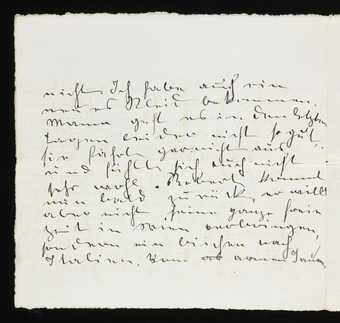 nicht. Ich habe auch ein
neues Kleid bekommen.
Mama geht es in den letzten
Tagen leider nicht so gut,
sie fährt gar nicht aus
und fühlt sich auch nicht
sehr wohl. Robert kommt
nun bald zurück, er will
aber nicht seine ganze freie
Zeit in Wien verbringen,
sondern ein bischen nach
Italien.